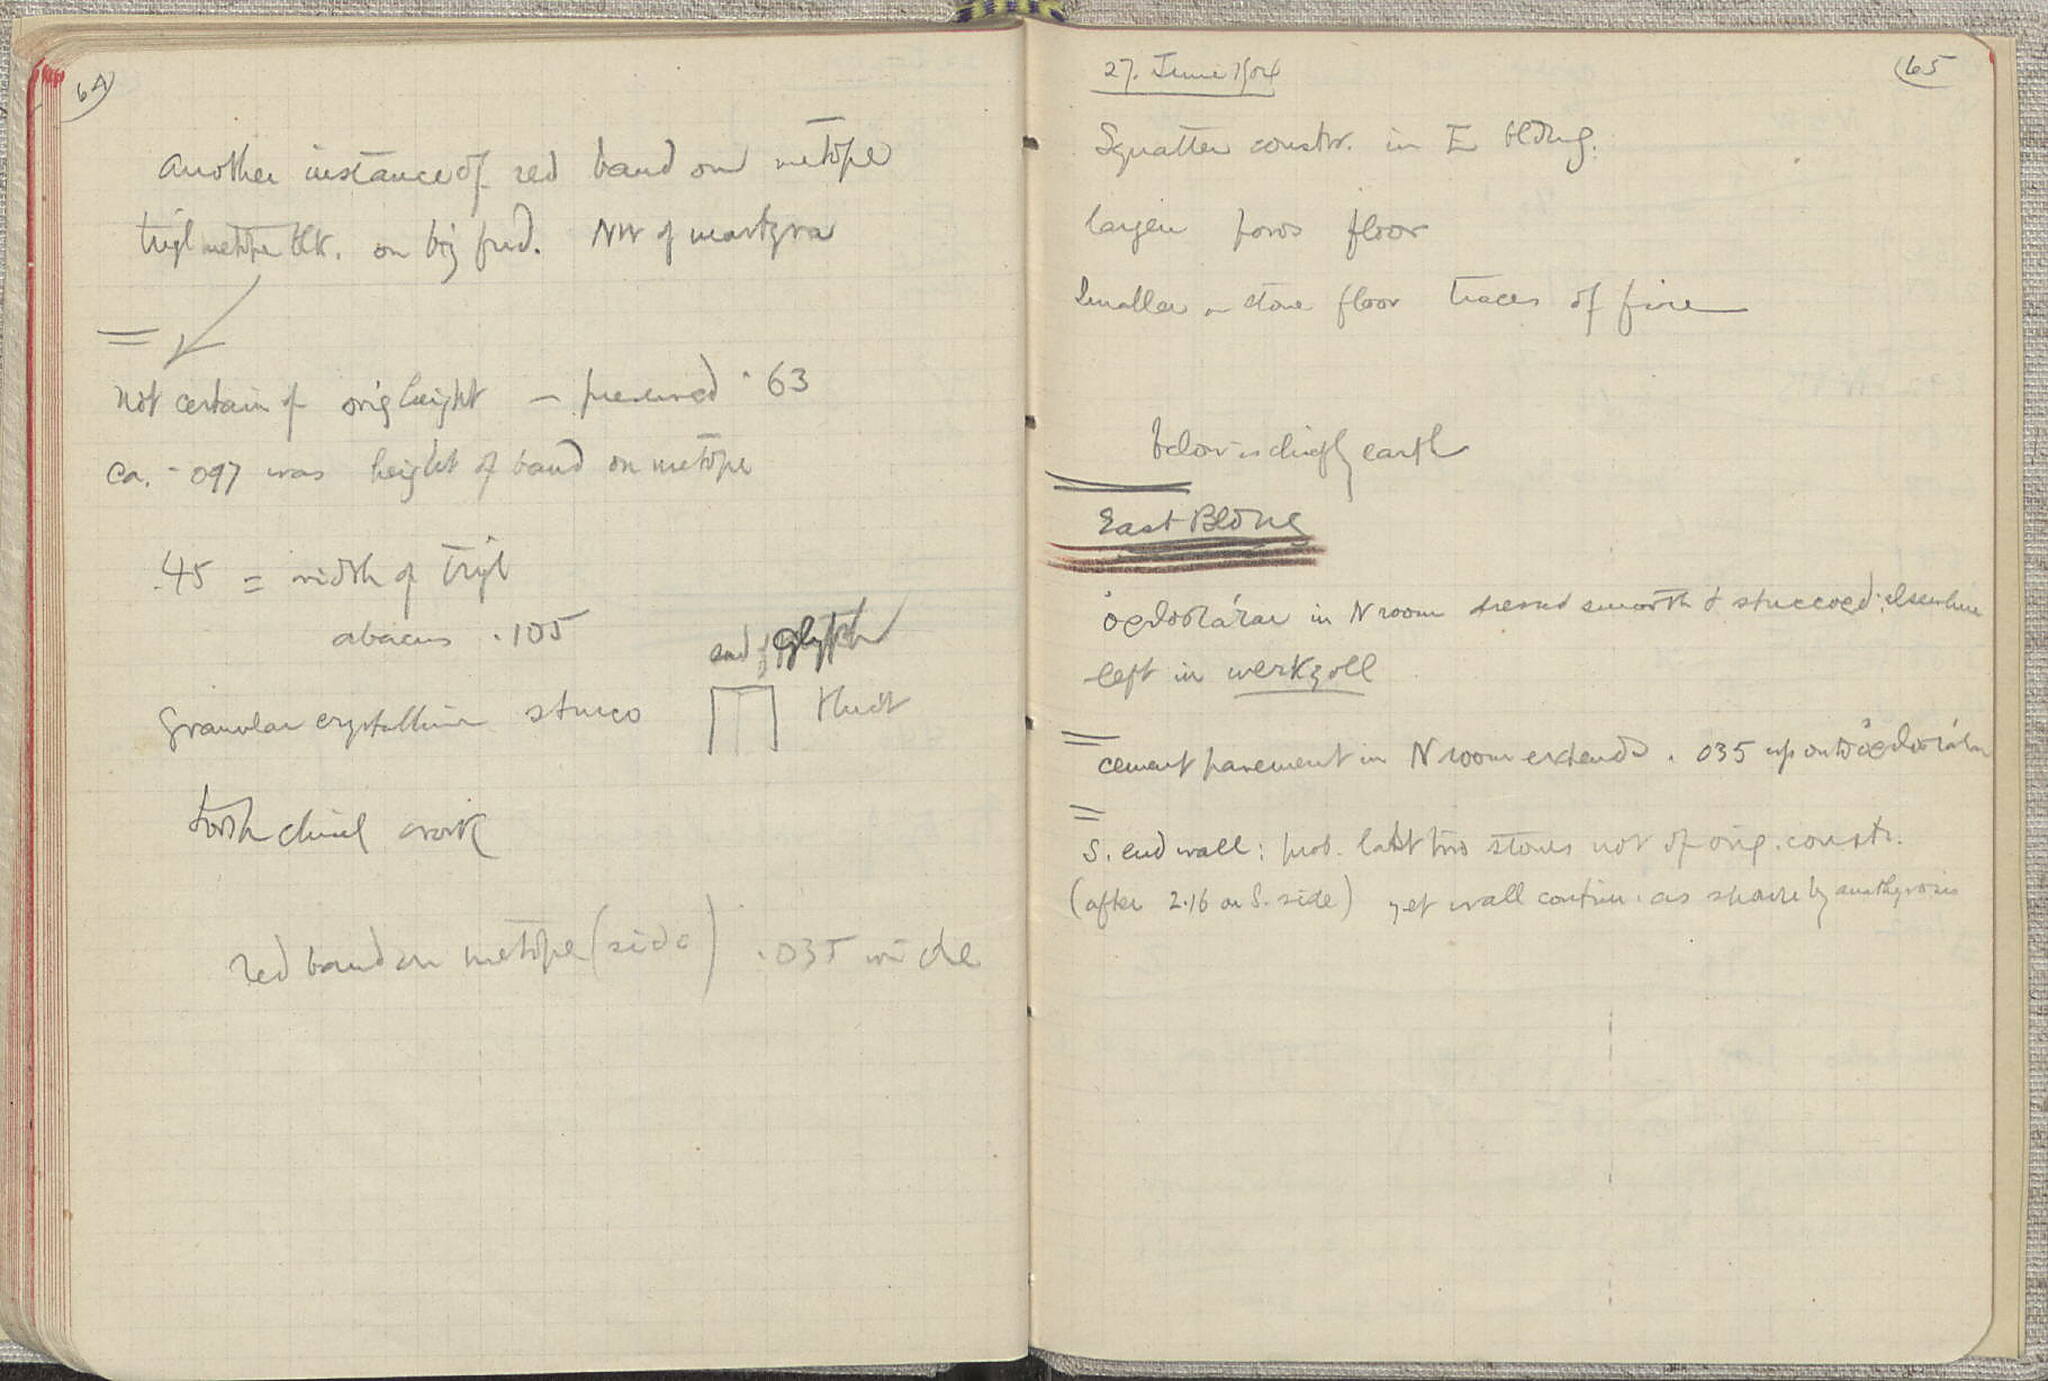 64
Another instance of red band on metope
trigl metope blk. on big fnd. NW of martyra
not certain of orig height – preserved .63
ca. .097 was height of band on metope
.45 = width of trigl
abacus .105
end of glyph
granular crystalline stucco thus
tooth chisel work
red band on metope (side) .035 wide
65
27. June 1904
Squatter constr. in E bldng:
larger poros floor
Smaller on stone floor traces of fire
below is chiefly earth
East Bldng
ὀρθοστάται in N room dressed smooth & stuccoed; elsewhere
left in werkzoll
cement pavement in N room extends .035 up onto ὀρθοστάται
S. end wall: prob. last two stones not of orig. constr.
(after 2.16 on S. side) yet wall contin. as shown by anathyrosis